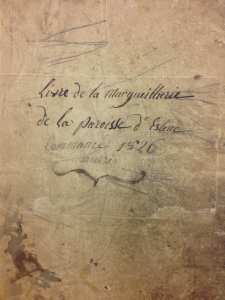 Livre de la Marguillerie
de la paroisse d'
Commancé 1820